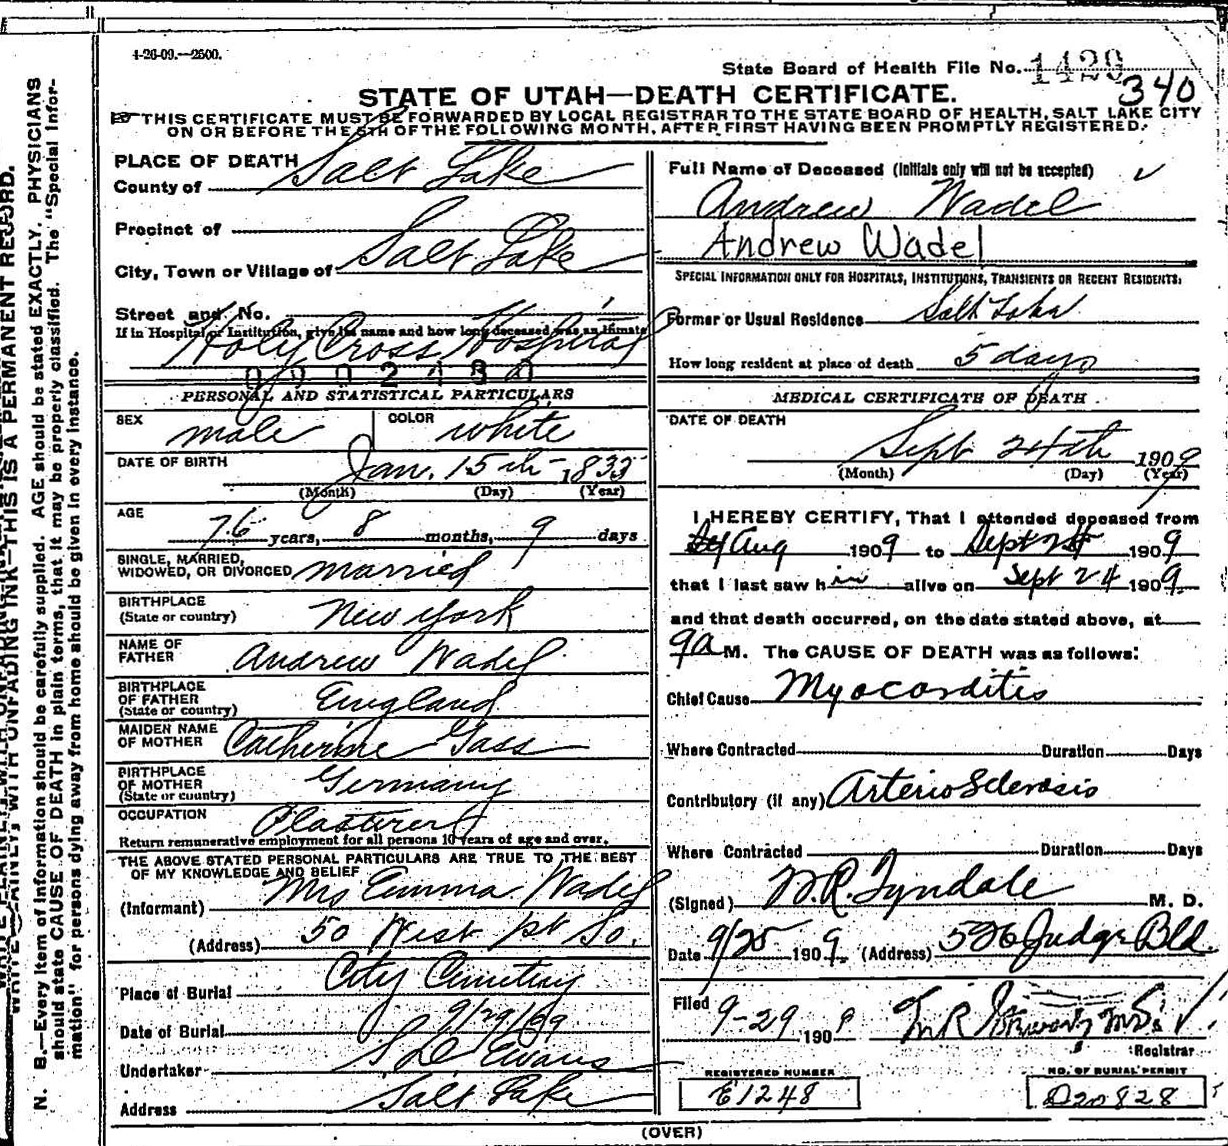 4-26-09.—2500.
State Board of Health File No. 1429
340
STATE OF UTAH—DEATH CERTIFICATE.
THIS CERTIFICATE MUST BE FORWARDED BY LOCAL REGISTRAR TO THE STATE BOARD OF HEALTH, SALT LAKE CITY
ON OR BEFORE THE 5TH OF THE FOLLOWING MONTH, AFTER FIRST HAVING BEEN PROMPTLY REGISTERED.
PLACE OF DEATH
County of Salt Lake
Precinct of
City, Town or Village of Salt Lake
Street and No.
If in Hospital or Institution, give its name and how long deceased was an inmate
Holy Cross Hospital
PERSONAL AND STATISTICAL PARTICULARS
SEX male COLOR white
DATE OF BIRTH Jan. 15th 1833
(Month) (Day) (Year)
AGE 76 years, 8 months, 9 days
SINGLE, MARRIED,
WIDOWED, OR DIVORCED married
BIRTHPLACE
(State or country) New York
NAME OF
FATHER Andrew Wadel
BIRTHPLACE
OF FATHER
(State or country) England
MAIDEN NAME
OF MOTHER Catherine Gass
BIRTHPLACE
OF MOTHER
(State or country) Germany
OCCUPATION Plasterer
Return remunerative employment for all persons 10 years of age and over.
THE ABOVE STATED PERSONAL PARTICULARS ARE TRUE TO THE BEST
OF MY KNOWLEDGE AND BELIEF
(Informant) Mrs Emma Wadel
(Address) 50 West 1st So.
Place of Burial City Cemetery
Date of Burial 9/29/09
Undertaker Evans
Address Salt Lake
Full Name of Deceased (Initials only will not be accepted)
Andrew Wadel
Andrew Wadel
SPECIAL INFORMATION ONLY FOR HOSPITALS, INSTITUTIONS, TRANSIENTS OR RECENT RESIDENTS:
Former or Usual Residence Salt Lake
How long resident at place of death 5 days
MEDICAL CERTIFICATE OF DEATH
DATE OF DEATH
Sept 24th 1909
(Month) (Day) (Year)
I HEREBY CERTIFY, That I attended deceased from
Aug 1909 to Sept 1909
that I last saw him alive on Sept 24 1909.
and that death occurred, on the date stated above, at
9a M. The CAUSE OF DEATH was as follows:
Chief Cause Myocarditis
Where Contracted Duration Days
Contributory (if any) Arterio Sclerosis
Where Contracted Duration Days
(Signed) W.R. Tyndale M. D.
Date 9/25 1909. (Address) 526 Judge Bld
Filed 9-29 1909
Registrar
REGISTERED NUMBER
E1248
NO. OF BURIAL PERMIT
D20828
(OVER)
N. B.—Every item of information should be carefully supplied. AGE should be stated EXACTLY. PHYSICIANS
should state CAUSE OF DEATH in plain terms, that it may be properly classified. The "Special Infor-
mation" for persons dying away from home should be given in every instance.
WITH UNFADING INK—THIS IS A PERMANENT RECORD.